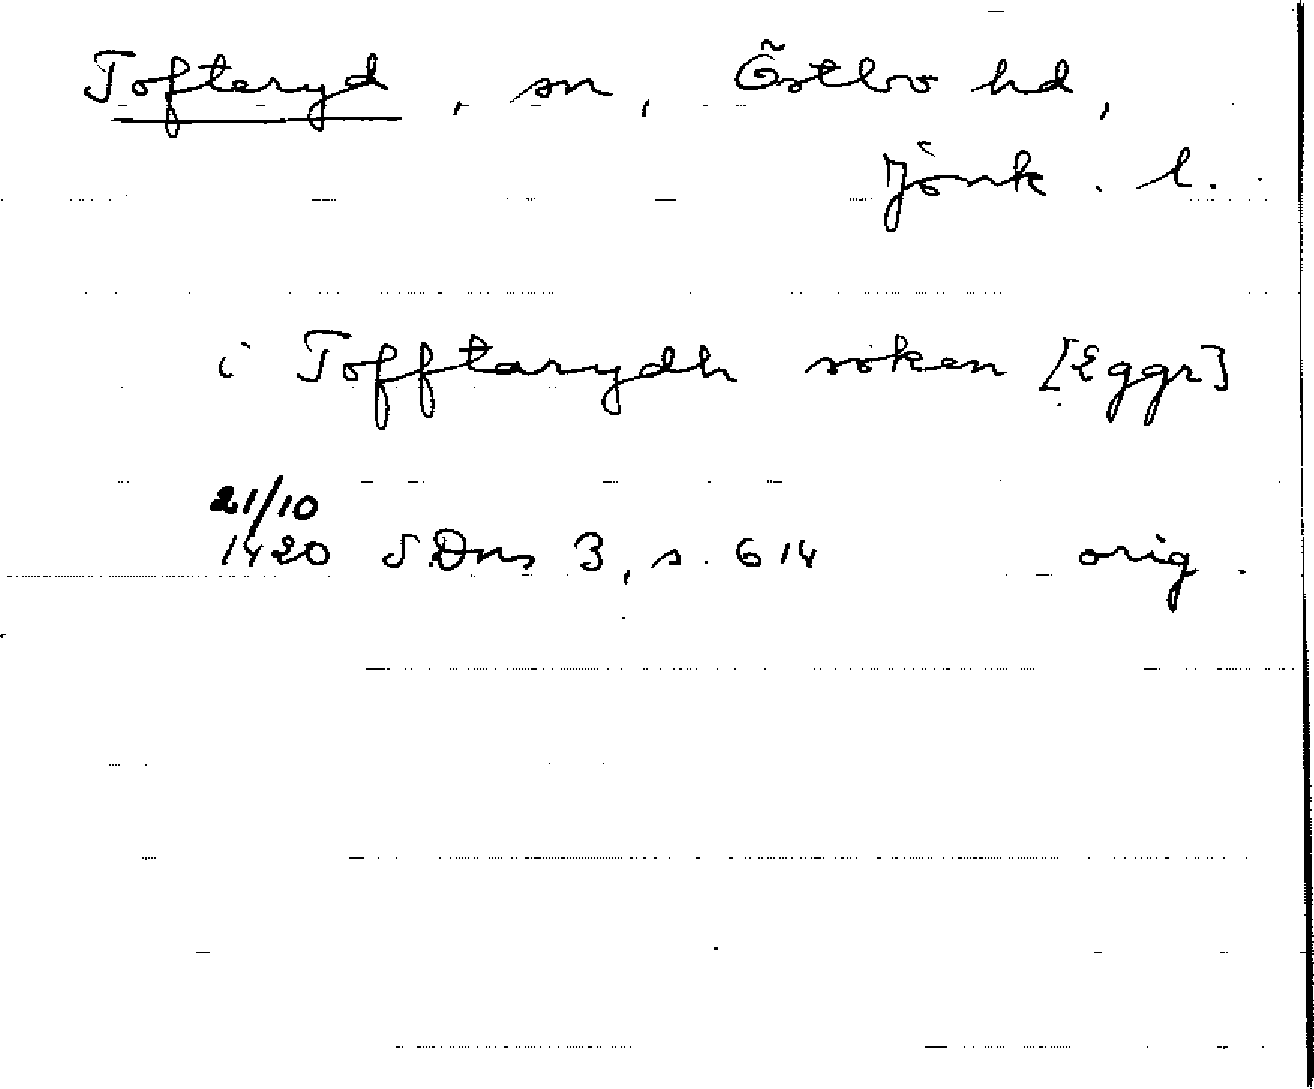 Tofteryd, sn, Östbo hd,
Jönk. l.
i Tofftarydh soken [Eggr]
21/10
1420 SDns 3, s. 614 orig.